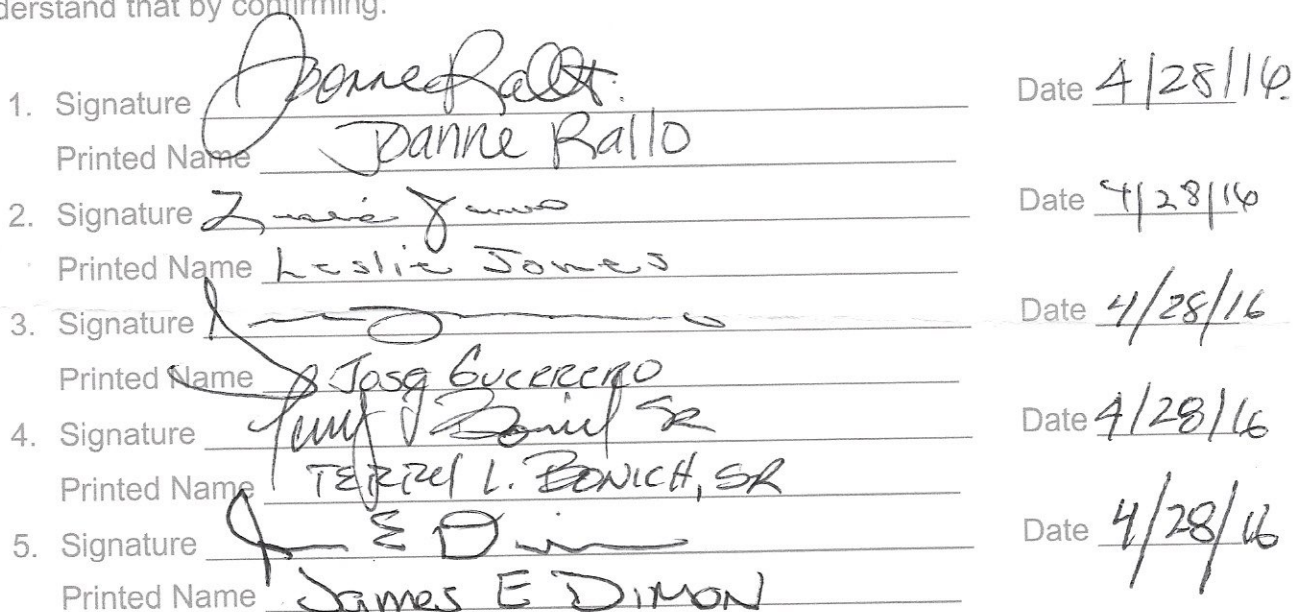 derstand that by confirming:
1. Signature Joanne Rallo Date 4/28/16
Printed Name Joanne Rallo
2. Signature Leslie Jones Date 4/28/16
Printed Name Leslie Jones
3. Signature Date 4/28/16
Printed Name Jose Guerrero
4. Signature Terry L Bonich SR Date 4/28/16
Printed Name TERRY L. BONICH, SR
5. Signature James E Dimon Date 4/28/16
Printed Name James E DIMON